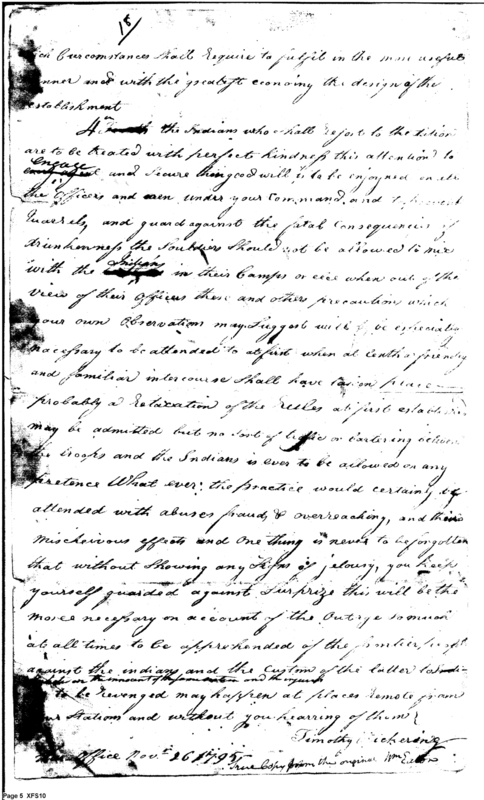 18
Circumstances shall require to fulfil in the most useful
manner and with the greatest economy the design of the
establishment
4th the Indians who shall resort to the
are to be treated with perfect kindness this attention to
Engage
and secure their good will is to be enjoyned on all
the Officers and men, under your Command, and to prevent
Quarrels, and guard against the fatal Consequences of
drunkenness the Souldiers Should not be allowed to mix
Indians
with the in their Camps or else when out of the
view of their Officers these and other precaution which
your own Observations may Suggest will be especially
nacessary to be attended to at first when at length a friendly
and familiar intercourse shall have taken place
probably a Relaxation of the Rules at first established
may be admitted but no sort of or bartering between
the troops and the Indians is ever to be allowed on any
pretence What ever: the practice would certainly be
attended with abuses fraud, & overreaching, and their
mischeivous effects and One thing is never to be forgotten
that without Showing any Signs of jelousy, you keep
yourself guarded against Surprize this will be the
more necessary on account of the Outrge so much
at all times to be apprehended of the frontier people
against the indians and the Custom of the latter to
on the innocent of the
to be revenged may happen at places remote from
your Station and without you hearring of them
Timothy Pickering
Office Novr 26 1795
True Copy from the original Wm Eaton
Page 5 XFS10